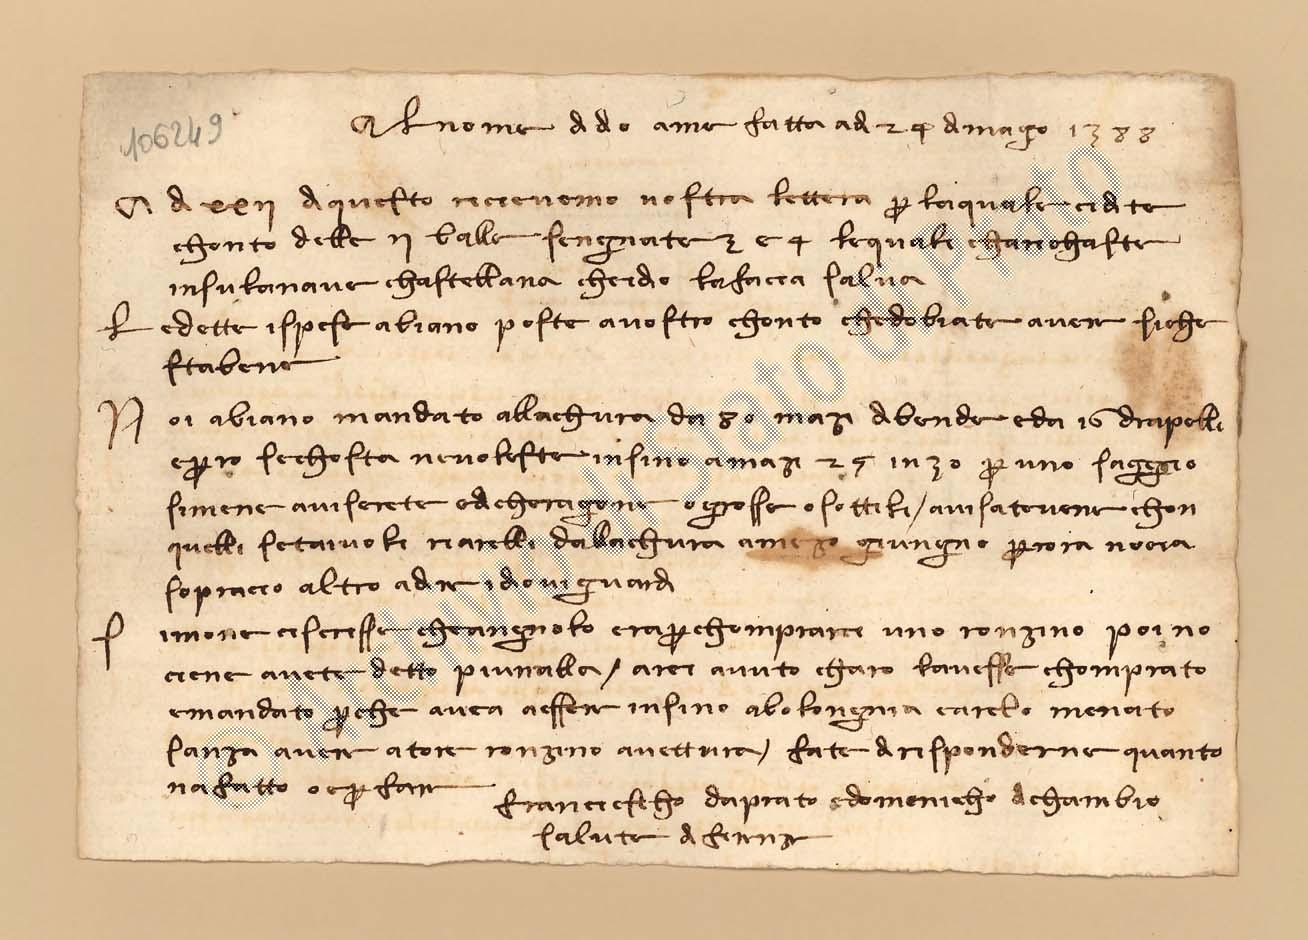 106249
Al nome d do ame fatta ad 24 d mago 1388
A d xxii d questo ricievemo vostra lettera p laquale cidite
chonto delle ii balle sengnate 3 e 4 lequali charichaste
insulanave chastellana cheido lafacca salva
L edette ispese abiano poste avostro chonto chedobiate avere siche
stabene
N oi abiano mandato allachura da 80 mazi d bende eda 16 drapelli
epro sechosta nevoleste insino amazi 25 in 30 p uno sagegio
simene aviserete edcheragone ogrosse osottili / avisatevene chon
quelli setaivoli riarelli dallachura amezo giungno
sopraccio altro adire idiovi guardi
S imone ciscrisse cheangnolo erapchomprarci uno ronzino poi no
ciene avete detto piunulla / arei avuto charo lavesse chomprato
emandato pche avea aessere insino abolongnia earelo menato
sanza avere atore ronzino avettura / fate dirisponderne quanto
nafatto oepfare
Franciescho daprato edomenicho dchambio
salute d firenze
© Archivio di Stato di Prato